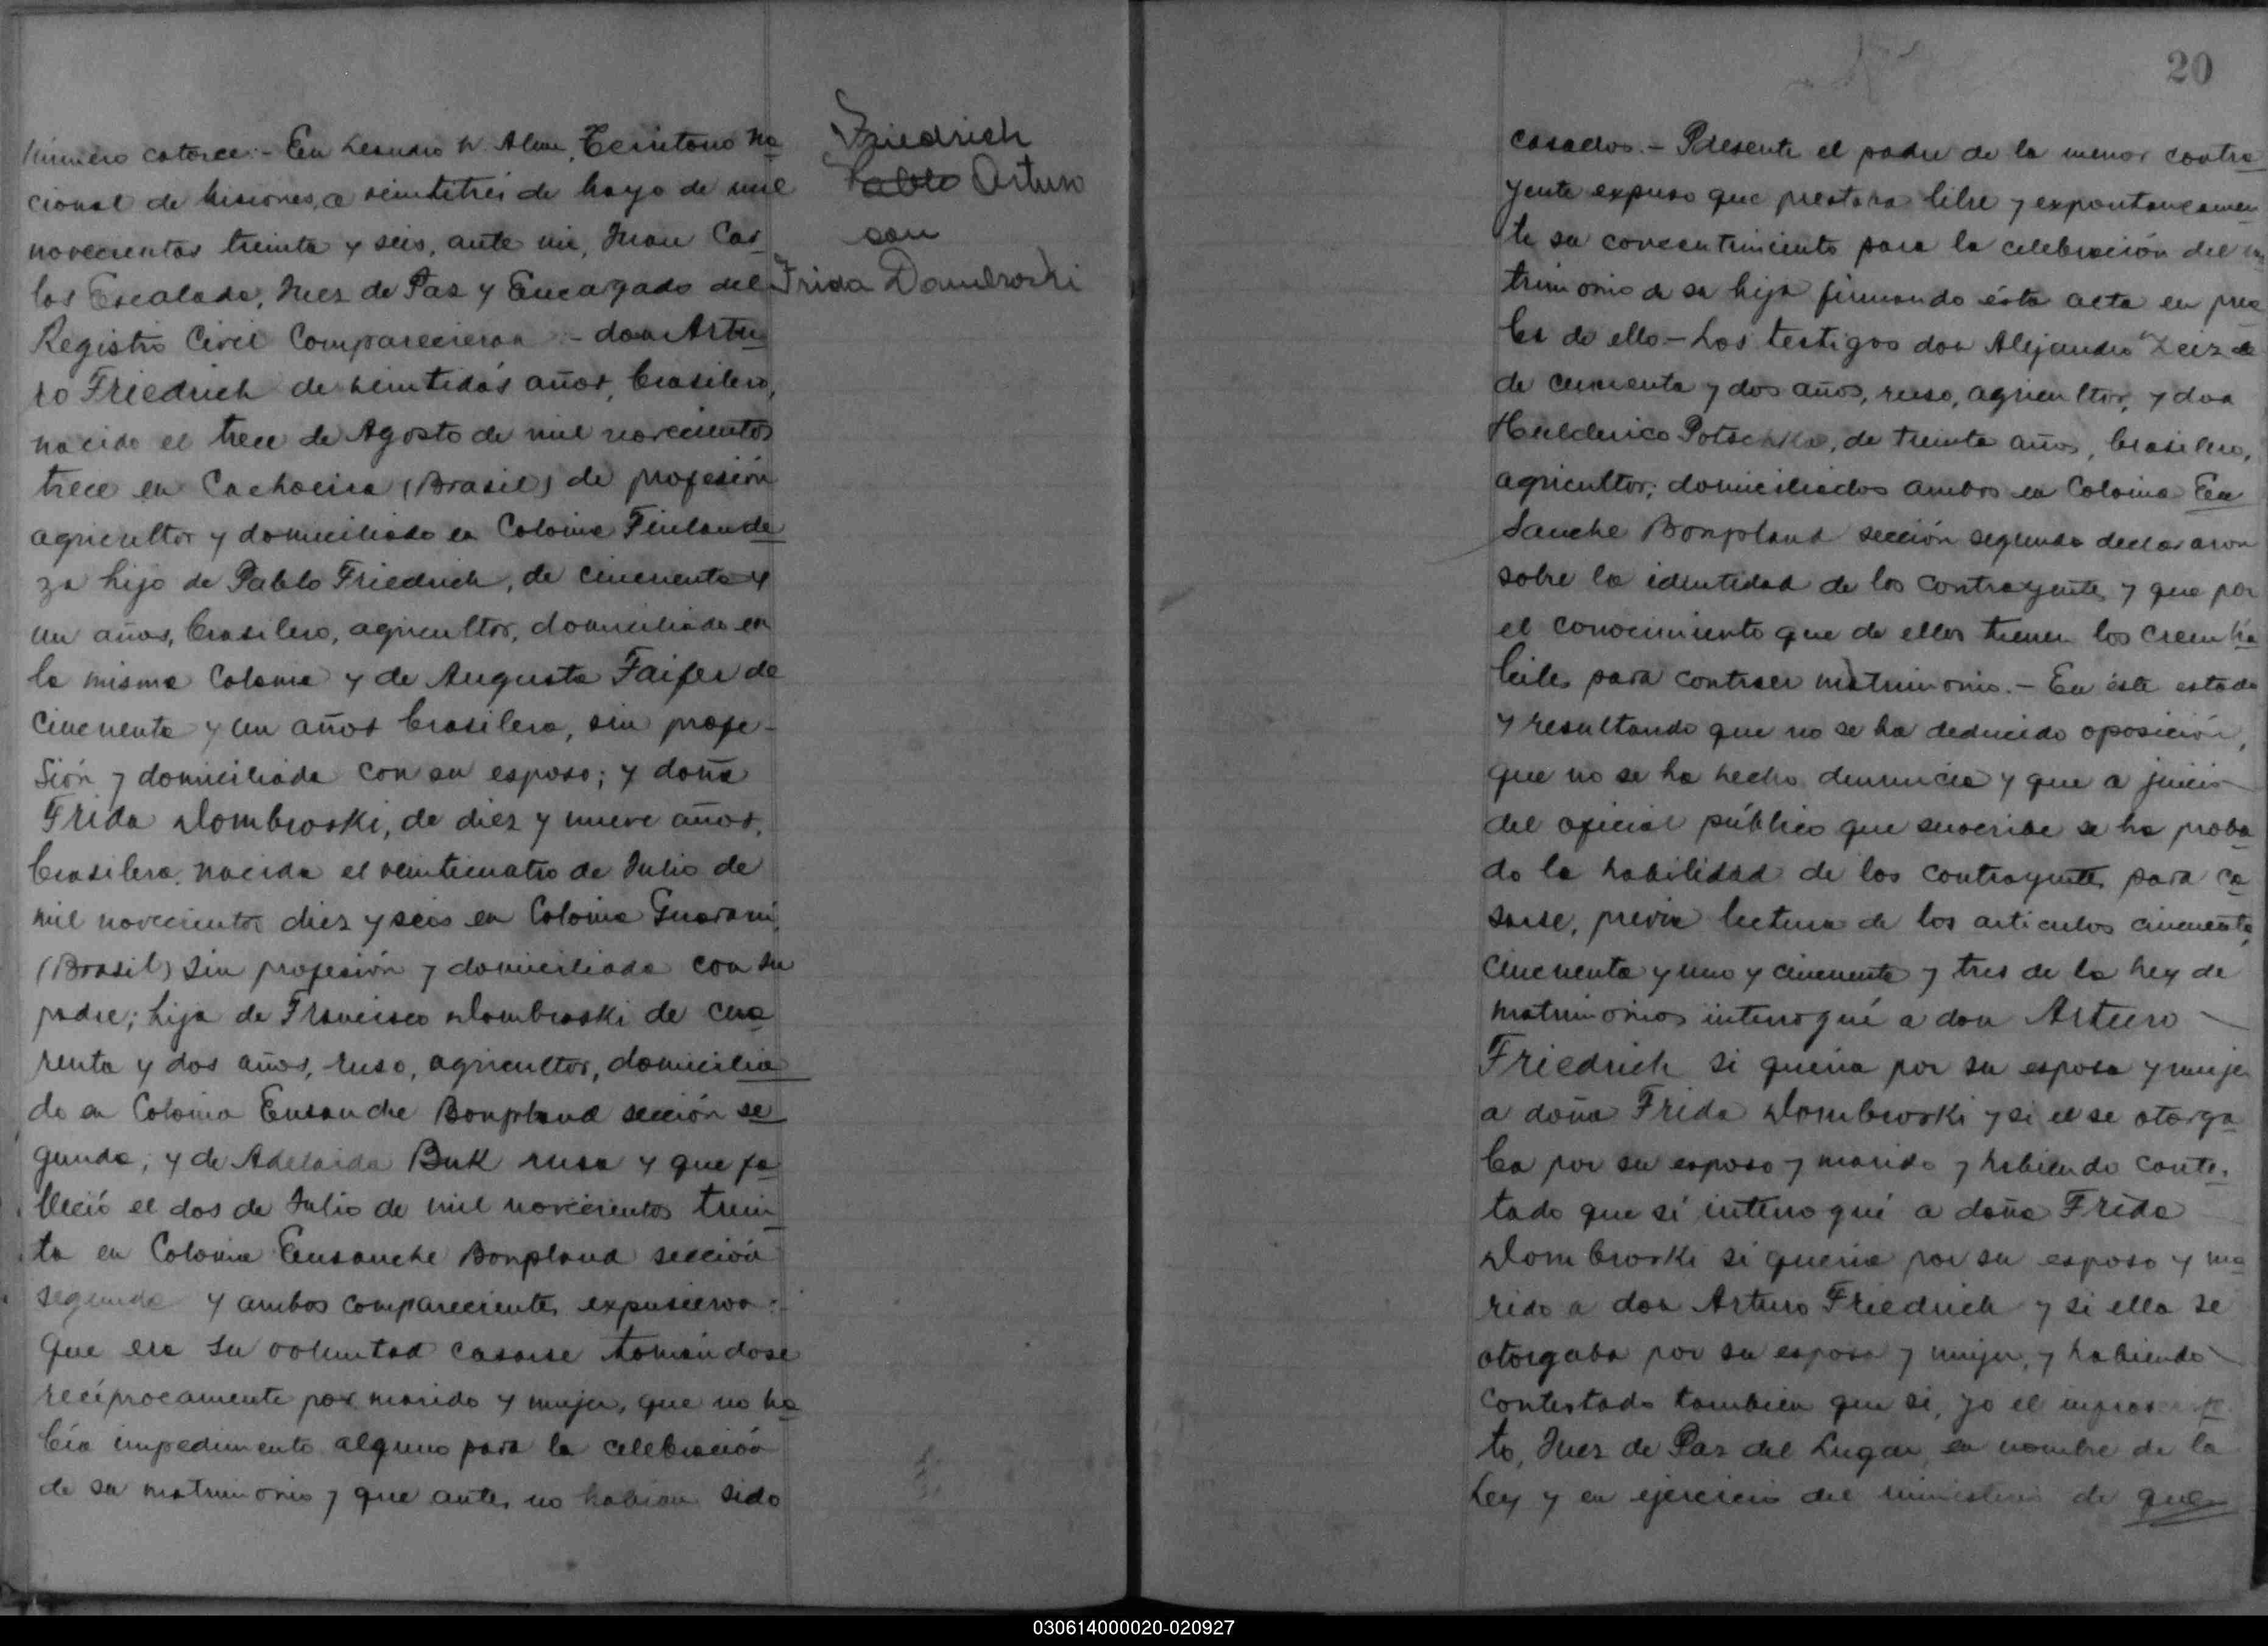 Número catorce.- En Leandro N. Alem, Territorio Na
cional de Misiones, a veintitrés de Mayo de mil
novecientos treinta y seis, ante mi, Juan Car
los Escalada, Juez de Paz y Encargado del
Registro Civil Comparecieron - don Artu
ro Friedrich de veintidós años, brasilero,
nacido el trece de Agosto de mil novecientos
trece en Cachoeira (Brasil) de profesión
agricultor y domiciliado en Colonia Finlande
za hijo de Pablo Friedrich, de cincuenta y
un años, brasilero, agricultor, domiciliado en
la misma Colonia y de Augusta Faifer de
cincuenta y un años brasilera, sin profe-
sión y domiciliada con su esposo; y doña
Frida Dombroski, de diez y nueve años,
brasilera, nacida el veinticuatro de Julio de
mil novecientos diez y seis en Colonia Guaraní,
(Brasil) sin profesión y domiciliada con su
padre; hija de Francisco Dombroski de cua
renta y dos años, ruso, agricultor, domicilia
do en Colonia Ensanche Bonpland sección se
gunda, y de Adelaida Buk rusa y que fa
lleció el dos de Julio de mil novecientos trein
ta en Colonia Ensanche Bonpland sección
segunda y ambos comparecientes expusieron:
Que era su voluntad casarse tomándose
recíprocamente por marido y mujer, que no ha
bía impedimento alguno para la celebración
de su matrimonio y que antes no habían sido
Friedrich
Pablo Arturo
con
Frida Dambroski
20
casados.- Presente el padre de la menor contra
yente expuso que prestara libre y expontaneamen
te su consentimiento para la celebración del ma
trimonio de su hija firmando ésta acta en prue
ba de ello.- Los testigos don Alejandro
de cincuenta y dos años, ruso, agricultor, y don
Hulderico Potschka, de treinta años, brasilero,
agricultor; domiciliados ambos en Colonia En
sanche Bonpland sección segunda declararon
sobre la identidad de los contrayentes y que por
el conocimiento que de ellos tienen los creen há
biles para contraer matrimonio.- En éste estado
y resultando que no se ha deducido oposición,
que no se ha hecho denuncia y que a juicio
del oficial público que suscribe se ha proba
do la habilidad de los contrayentes para ca
sarse, previa lectura de los artículos cincuenta,
cincuenta y uno y cincuenta y tres de la Ley de
matrimonios interrogué a don Arturo
Friedrich si quería por su esposa y mujer
a doña Frida Dombroski y si el se otorga
ba por su esposo y marido y habiendo contes
tado que sí interrogué a doña Frida
Dombroski si quería por su esposo y ma
rido a don Arturo Friedrich y si ella se
otorgaba por su esposa y mujer, y habiendo
contestado tambien que si, yo el infrascrip
to, Juez de Paz del Lugar, en nombre de la
Ley y en ejercicio del ministerio de que
030614000020-020927